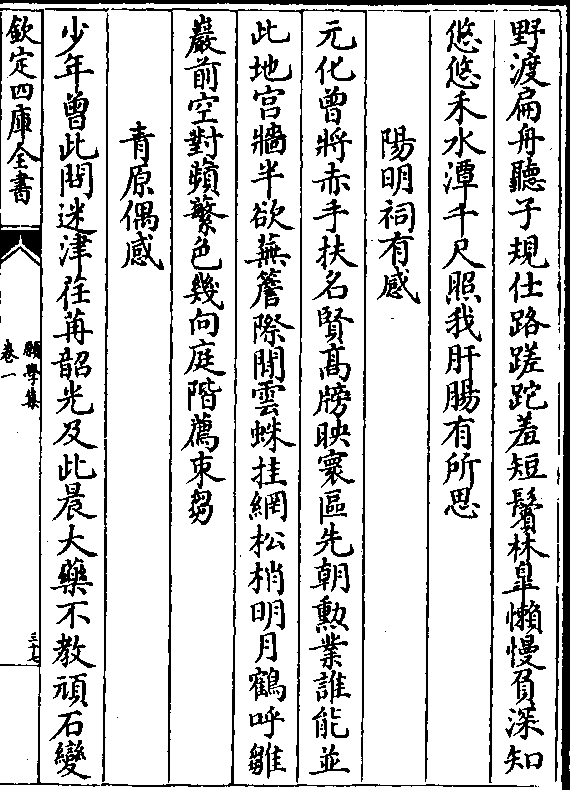 野渡扁舟聽子規仕路蹉跎羞短鬢林臯懶慢負深知
悠悠禾水潭千尺照我肝腸有所思
陽明祠有感
元化曾將赤手扶名賢髙牓映寰區先朝勲業誰能並
此地宫牆半欲蕪簷際閒雲蛛挂網松梢明月鶴呼雛
巖前空對蘋蘩色幾向庭階薦束芻
青原偶感
少年曾此問迷津荏苒韶光及此晨大藥不教頑石變
欽定四庫全書
願學集
卷一
三十七